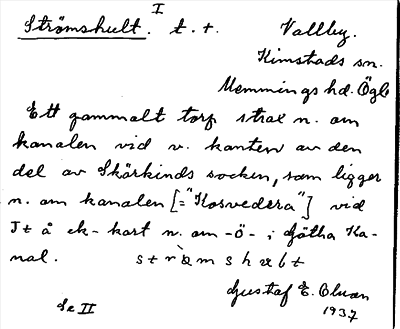 I
Strömshult. t. t. Vallby.
Kimstads sn.
Memmings hd. Ögl
Ett gammalt torp strax n. om
kanalen vid v. kanten av den
del av Skärkinds socken, som ligger
n. om kanalen [= "Kosvedera"] vid
Jt å ek-kart n. om -ö- i Götha Ka-
nal. strömshulet
Gustaf E. Olson
Se II 1937